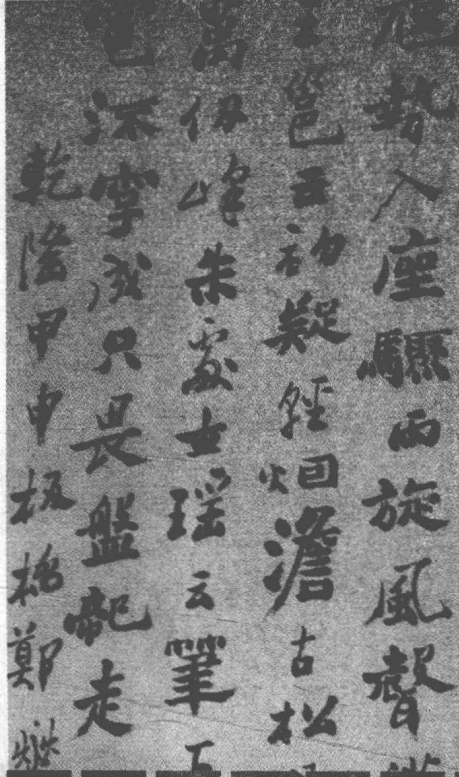 勢入座驟雨旋風聲
邕云初疑輕烟澹古松
萬仞峰朱處士瑤云筆下
流字成只畏盤龍走
乾隆甲申板橋鄭燮